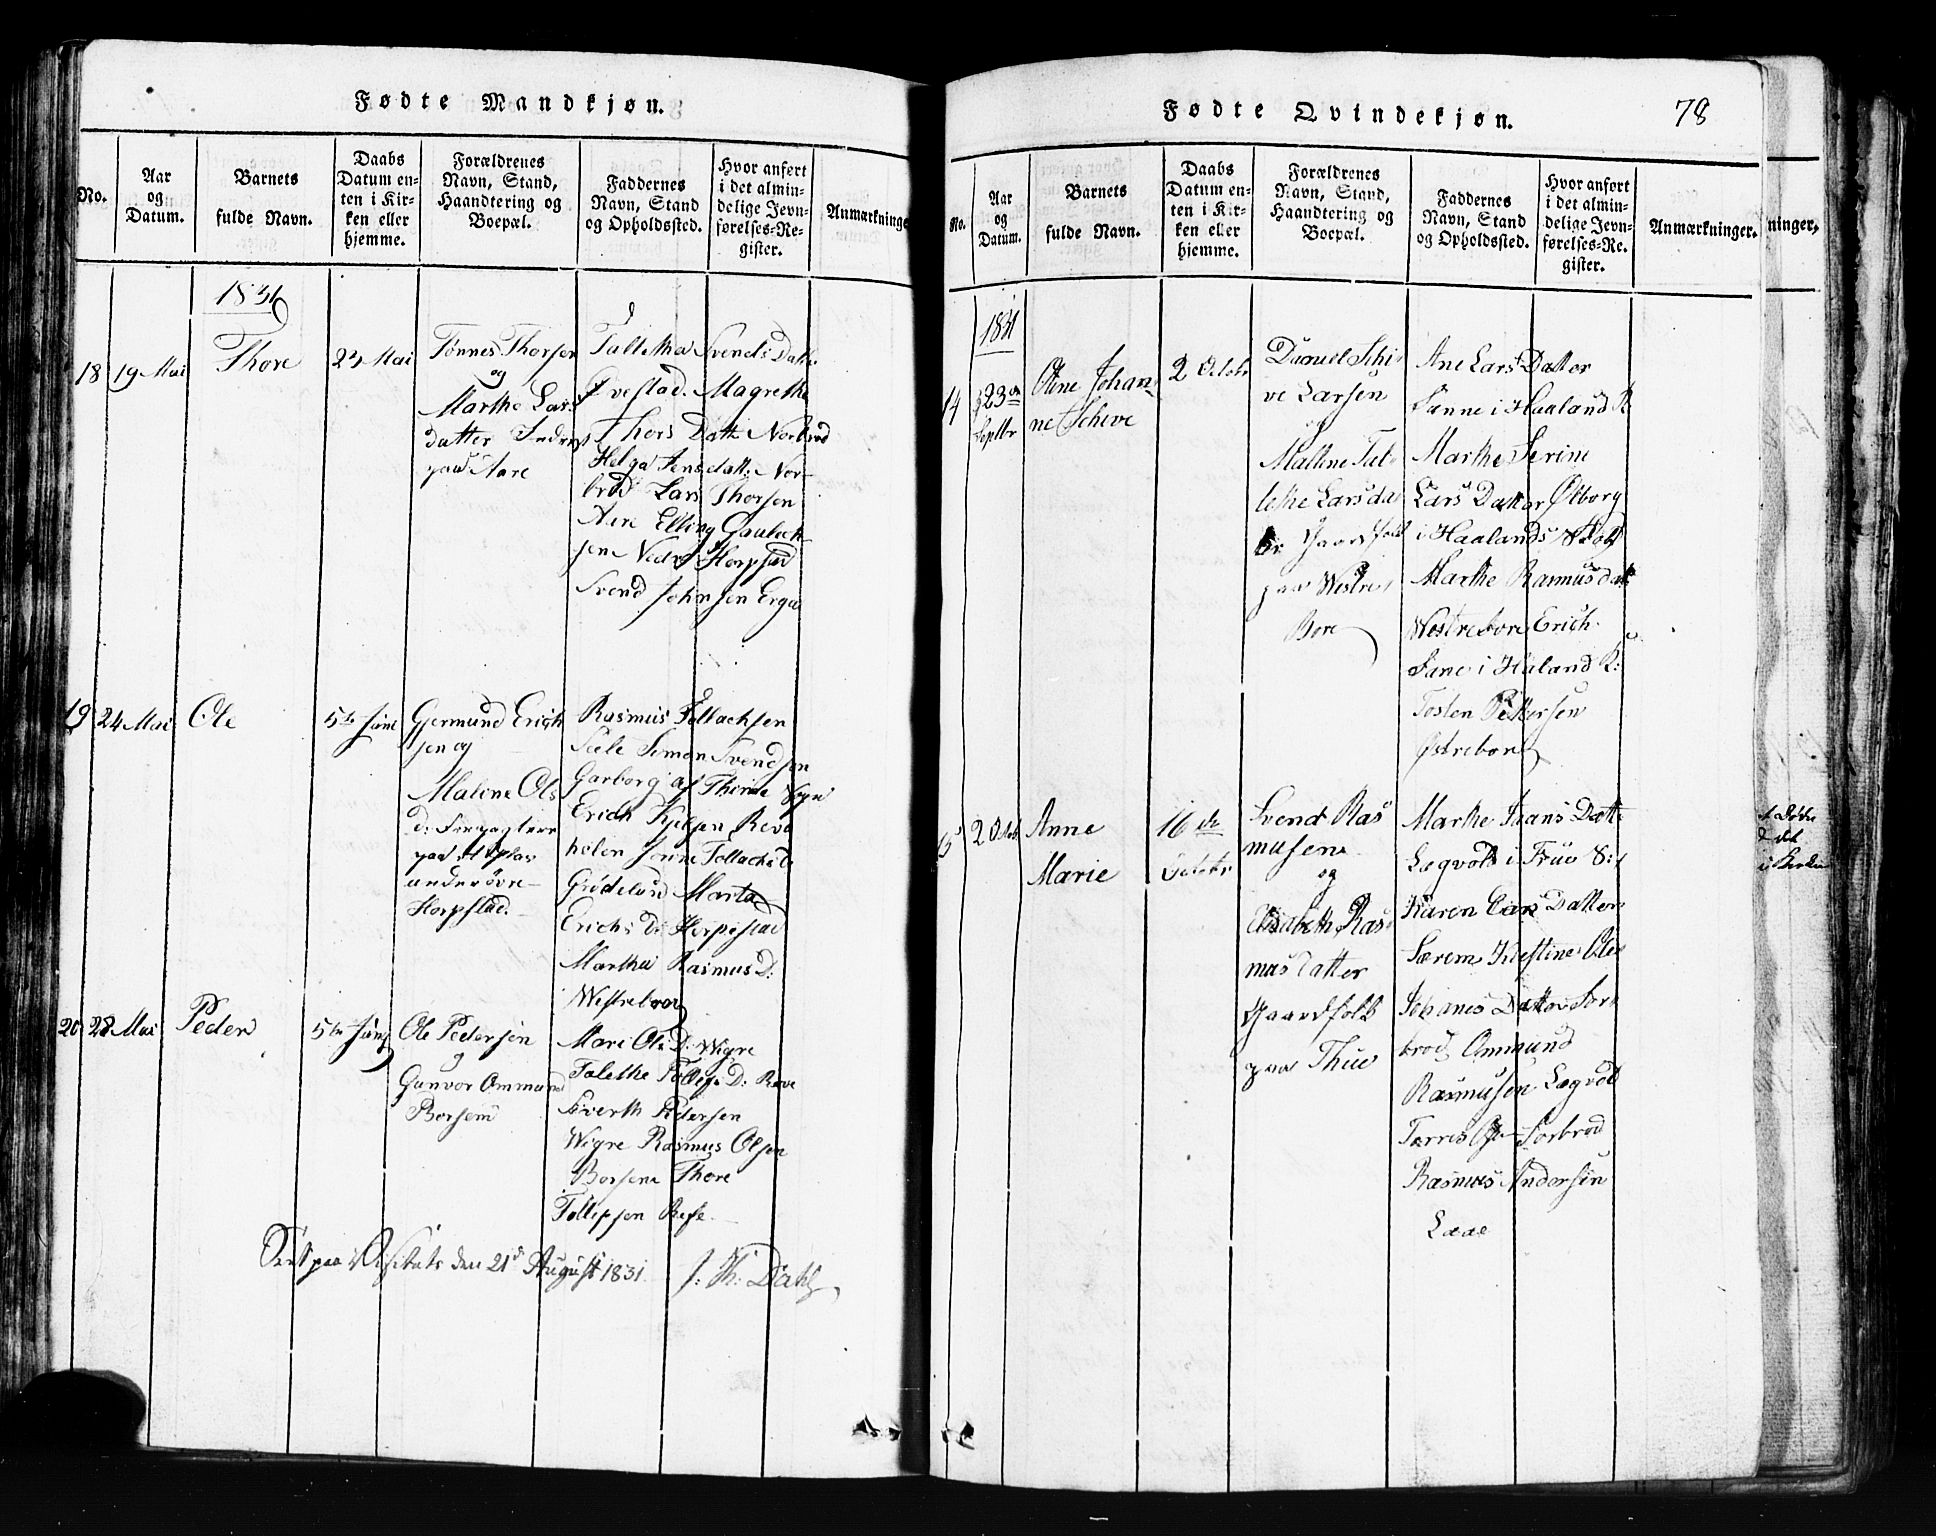 Fødte Mandkjøn.
No.
Aar
og
Datum.
Barnets
fulde Navn.
Daabs
Datum en-
ten i Kir-
ken eller
hjemme.
Forældrenes
Navn, Stand,
Haandtering og
Boepæl.
Faddernes
Navn, Stand
og Opholdssted.
Hvor anført
i det almin-
delige Jevn-
førelses-Re-
gister.
Anmærkninge
1831
18
19 Mai
Thore
Mai
Tønnes Thorsen
og
Marthe Lars
datter
paa Aare
Taletha Svends Datt
Magrethe
Thors Datt Norbrød
Helga Jens datt: Nor-
brød Lars Thorsen
Aare Elling
sen Nedre Horpstad
Svend Johnsen Erga
19
24 Mai
Ole
5te Juni
Gjermund Erich
sen og
Malene Ols
D:
paa et Plas
under øvre
Horpstad.
Rasmus Tollachsen
Sele Simon Svendsen
Garborg af Thime Sogn
Erich Kjelsen Reve
Tollachs D
Grødeland Marta
Erichs D: Horpestad
Martha Rasmus D:
Westreboe
20
28 Mai
Peder
5te Juni
Ole Pedersen
og
Gunvor Ommund
Borsem
Mari Ols D: Wigre
Talethe Tollefs D: Reve
Siverth Pedersen
Wigre Rasmus Olsen
Borsem Thore
Tollefsen Refe
Seet paa Visitats den 21de August 1831. J: Th: Dahl
Fødte Qvindekjøn.
78
No.
Aar
og
Datum.
Barnets
fulde Navn.
Daabs
Datum en-
ten i Kir-
ken eller
hjemme.
Forældrenes
Navn, Stand,
Haandtering og
Boepæl.
Faddernes
Navn, Stand
og Opholdssted.
Hvor anført
i det almin-
delige Jevn-
førelses-Re-
gister.
Anmærkninger.
ninger.
1831
14
23de
Septbr
Johan-
ne Scheve
2 Octobr
Daniel Schi-
ve Larsen
og
Malene Tal-
lethe Larsdat
ter Gaardfolk
paa Westre
Bore
Ane Lars Datter
Sanne i Haaland K
Marthe Serine
Lars Datter Ølborg
i Haalands
Marthe Rasmus datt
Westrebore Erich
Sane i Haland K:
Tosten Pettersen
Østrebore
15
2 Octob
Anne
Marie
16de
Octobr
Svend Ras
musen
og
Elisabeth Ras
mus datter
Gaardfolk
paa Thue
Marthe Hans Datt
Legvold i Frue S:
Karen Lars Datter
Særem Kirstine Ole
Johanes Datter Sør-
brød Ommund
Rasmusen Legvol
Torres Sørbrød
Rasmus Andersen
Laae